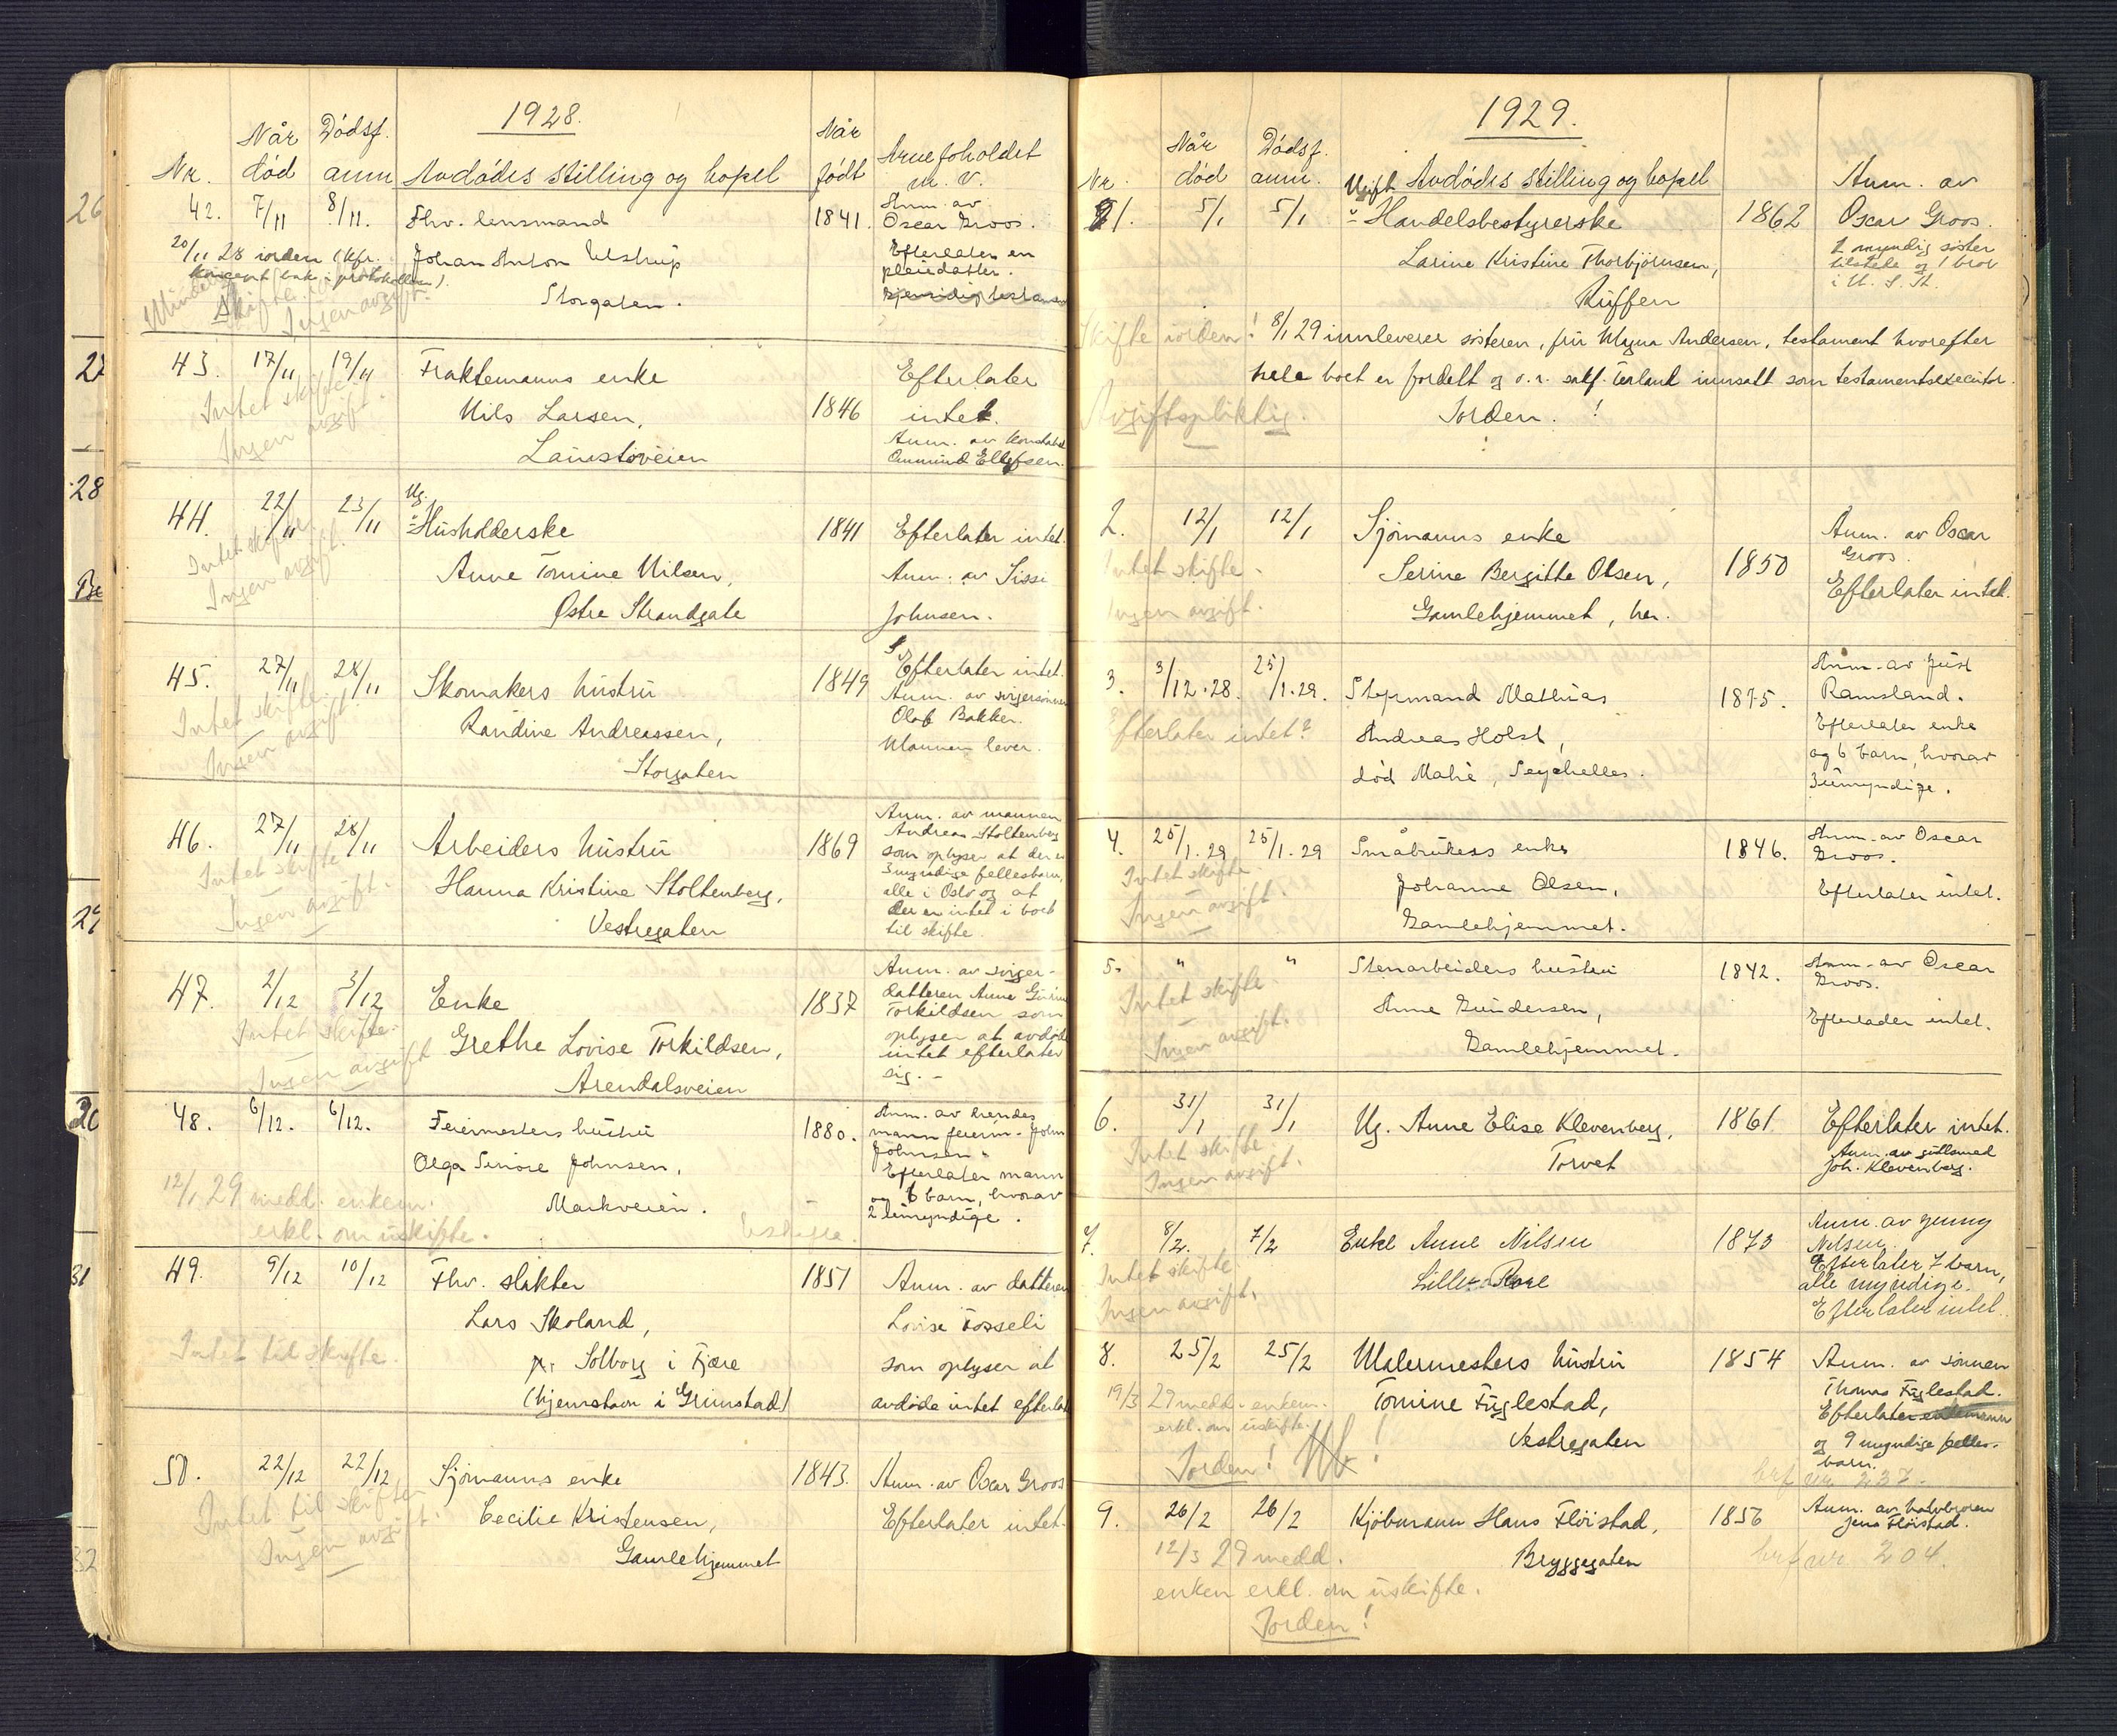 1928.
Nr. Når død Dødsf. anm Avdødes stilling og bopel Når født Arveforholdet m. v.
42. 7/11 8/11. Fhv. lensmand 1841. Anm. av Oscar Groos.
20/11 28 iorden (kfr. Johan Anton Ulstrup Efterlater en
pleiedatter.
Storgaten.
Ingen avgift.
43. 17/11 19/11 Fraktemanns enke Efterlater
Intet skifte Nils Larsen, 1846 intet.
Ingen avgift. Anm. av konstabel
Ommund Ellefsen.
Ug.
44. 22/11 23/11 Husholderske 1841 Efterlater intet.
Intet skifte Anne Tomine Nilsen, Anm. av Sissi
Ingen avgift. Østre Strandgate Johnsen.
45. 27/11 28/11 Skomakers hustru 1849 Efterlater intet.
Intet skifte Randine Andreassen, Anm. av svigersønnen
Ingen avgift. Storgaten Olaf Bakken.
Mannen lever.
46. 27/11 28/11 Arbeiders hustru 1869 Anm. av mannen
Intet skifte Hanna Kristine Stoltenberg, Andreas Stoltenberg
Ingen avgift. Vestregaten som oplyser at der er
3 myndige fellesbarn,
alle i Oslo og at
der er intet i boet
til skifte.
47. 2/12 3/12 Enke 1837 Anm. av sviger-
Intet skifte. Grethe Lovise Torkildsen, datteren Anne
Ingen avgift Arendalsveien Torkildsen som
oplyser at avdøde
intet efterlater
sig. -
48. 6/12. 6/12. Feiermesters hustru 1880. Anm. av hendes
Olga Senore Johnsen, mann feierm. John
12/1 29 medd. enkem. Markveien. Johnsen
erkl. om uskifte. Uskifte. Efterlater mann
og 6 barn, hvorav
2 umyndige.
49. 9/12 10/12 Fhv. slakter 1851 Anm. av datteren
Lars Skoland, Lovise Fosseli
Intet til skifte. pr Solborg i Fjære som oplyser at
(hjemstavn i Grimstad) avdøde intet efterlat
50. 22/12 22/12 Sjømanns enke 1843. Anm. av Oscar Groos
Intet til skifte Cecilie Kristensen, Efterlater intet.
Ingen avgift. Gamlehjemmet
1929.
Nr. Når død Dødsf. anm. Avdødes stilling og bopel Anm. av
Ugift
1. 5/1 5/1. Handelsbestyrerske 1862 Oscar Groos.
Larine Kristine Thorbjørnsen, 1 myndig søster
Kuffen tilstede og 1 bror
i U. S. A.
Skifte iorden! 8/1 29 innleverer søsteren, fru Myna Andersen, testament hvorefter
hele boet er fordelt og o. r. sakf. Terland innsatt som testamentsexecutor.
Avgiftspliktig. Iorden.!
2. 12/1 12/1 Sjømanns enke Anm. av Oscar
Intet skifte. Serine Bergitte Olsen, 1850 Groos.
Ingen avgift. Gamlehjemmet, her. Efterlater intet.
3. 3/12.28. 25/1.29. Styrmand Mathias 1875. Anm. av Just
Efterlater intet? Andreas Holst, Ramsland.
død Mahé, Seychelles. Efterlater enke
og 6 barn, hvorav
3 umyndige.
4. 25/1.29 25/1.29 Småbrukers enke 1846. Anm. av Oscar
Intet skifte. Johanne Olsen, Groos.
Ingen avgift. Gamlehjemmet. Efterlater intet.
5. " " Stenarbeiders hustru 1842. Anm. av Oscar
Intet skifte. Anne Gundersen, Groos.
Ingen avgift. Gamlehjemmet. Efterlader intet.
6. 31/1 31/1 Ug. Anne Elise Klevenberg, 1861 Efterlater intet.
Intet skifte. Torvet Anm. av gullsmed
Ingen avgift. Joh. Klevenberg.
7. 8/2. 7/2 Enke Anne Nilsen 1873 Anm. av Jenny
Intet skifte. Lille Rore Nilsen.
Ingen avgift. Efterlater 7 barn,
alle myndige.
Efterlater intet.
8. 25/2 25/2 Malermesters hustru 1854 Anm. av sønnen
19/3 29 medd. enkem. Tomine Fuglestad, Thomas Fuglestad.
erkl. om uskifte. Vestregaten Efterlater enkemann
Iorden! og 9 myndige felles-
barn.
brf nr 237.
9. 26/2 26/2 Kjøbmann Hans Fløistad, 1856 Anm. av halvbroren
12/3 29 medd. Bryggegaten Jens Fløistad.
enken erkl. om uskifte. brf nr 204.
Iorden!